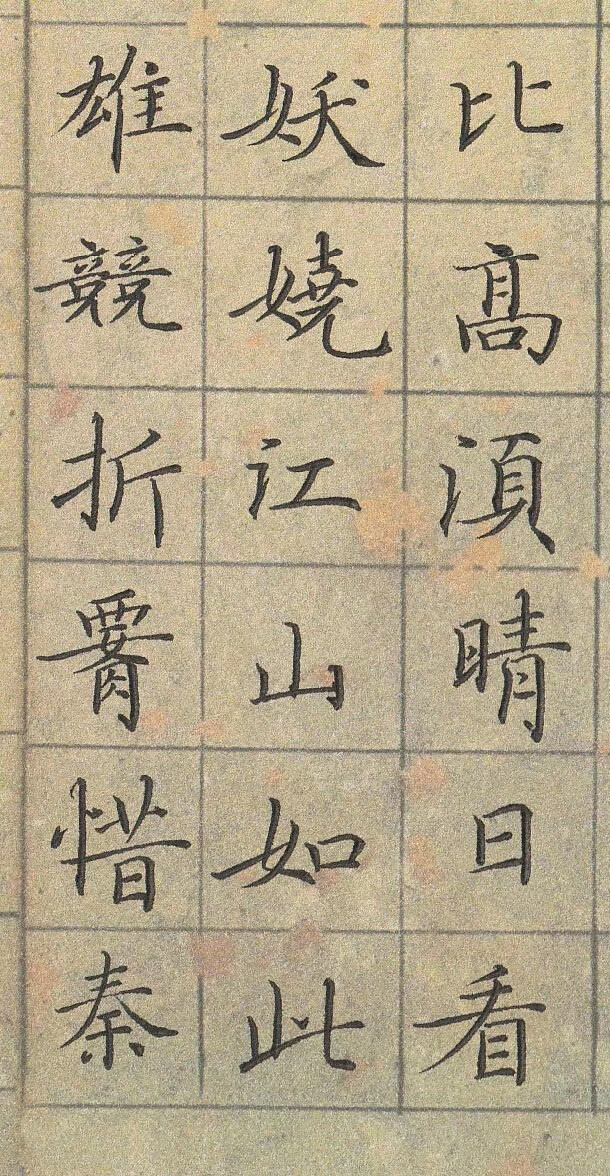 比髙湏晴日看
妖嬈江山如此
雄競折腰惜秦